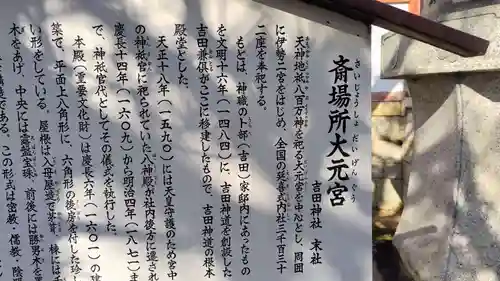 斎場所大元宮
さいじょうしょ だいげんぐう
吉田神社 末社
天神地祇八百万神を祀る大元宮を中心とし、周囲
に伊勢二宮をはじめ、全国の延喜式内社三千百三十
二座を奉祀する。
もとは、神職の卜部（吉田）家邸内にあったもの
を文明十六年（一四八四）に、吉田神道を創設した
吉田兼倶がここに移建したもので、吉田神道の根本
殿堂とした。
天正十八年（一五九〇）には天皇守護のため宮中
の神祇官に祀られていた八神殿が社内後方に遷され
慶長十四年（一六〇九）から明治四年（一八七一）ま
で、神祇官代としてその儀式を執行した。
本殿（重要文化財）は慶長六年（一六〇一）の建
築で、平面上八角形に、六角形の後房を付した珍し
い形をしている。屋根は入母屋造で茅葺、棟には千
木をあげ、中央には露盤宝珠、前後には勝男木を置
である。この形式は密教、儒教、陰陽